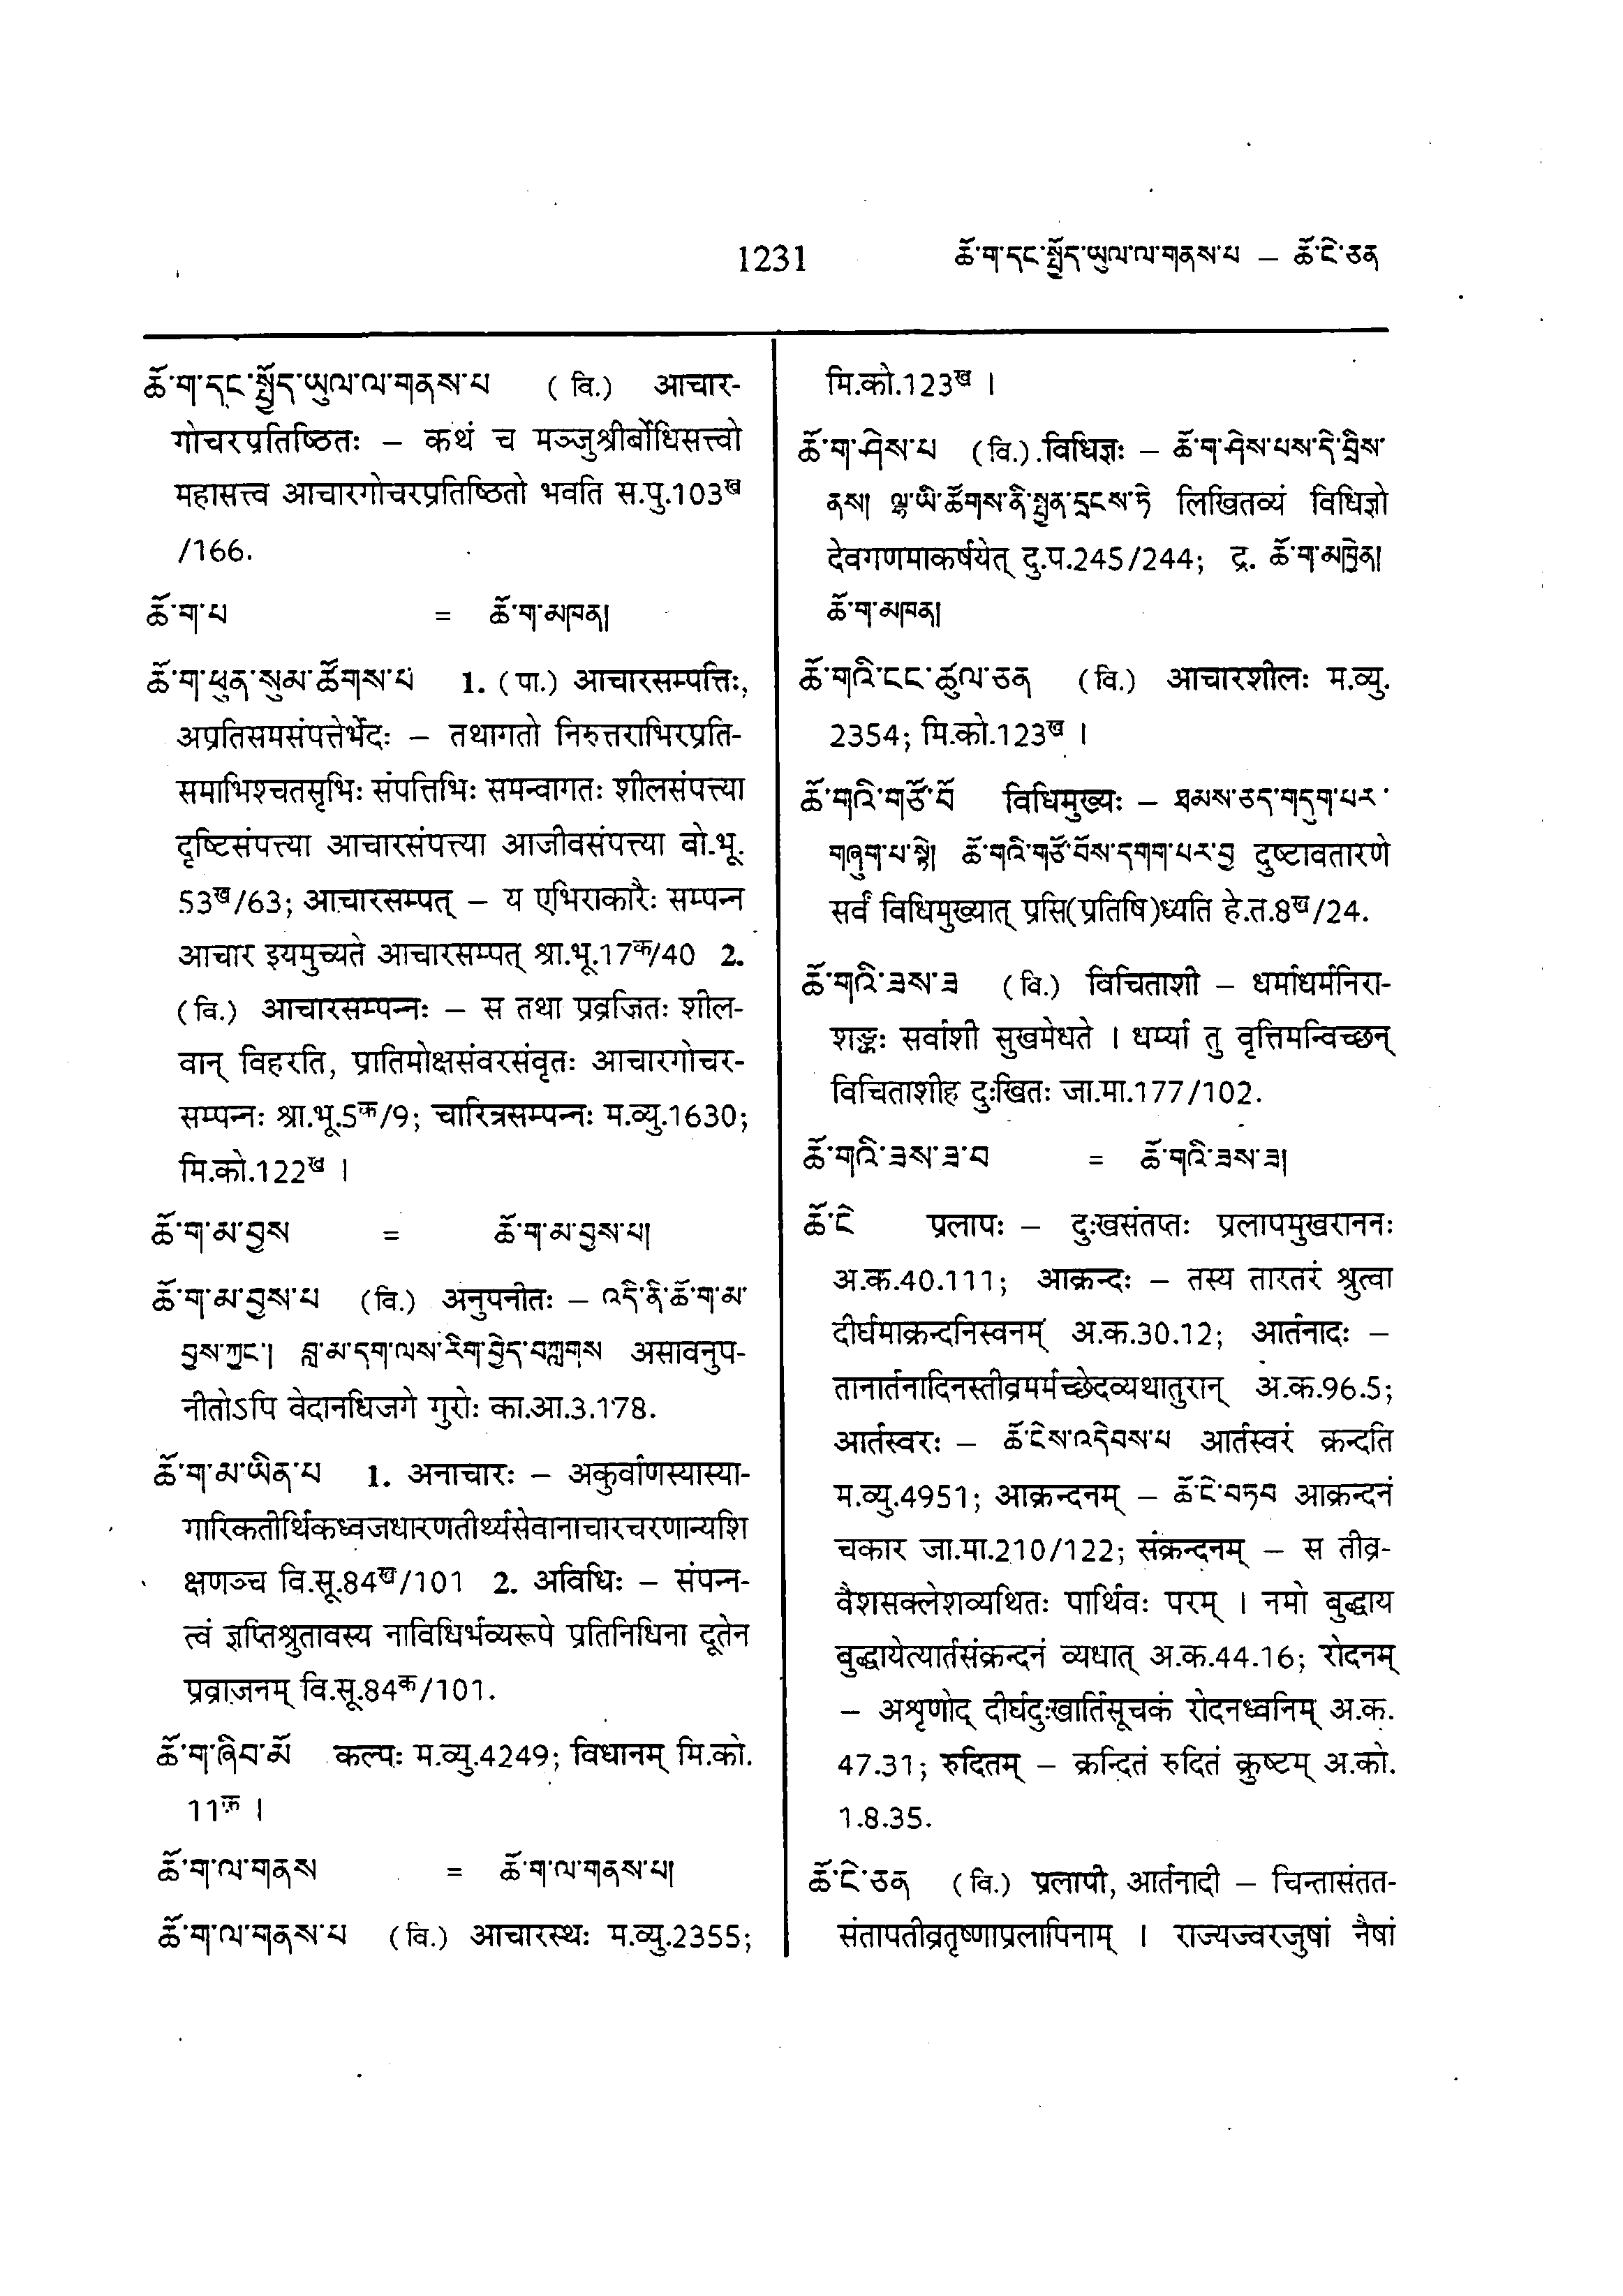 1231 ཆོ་ག་དང་སྤྱོད་ཡུལ་ལ་གནས་པ – ཆོ་ངེ་ཅན
ཆོ་ག་དང་སྤྱོད་ཡུལ་ལ་གནས་པ (वि.) आचार-
गोचरप्रतिष्ठितः – कथं च मञ्जुश्रीर्बोधिसत्त्वो
महासत्त्व आचारगोचरप्रतिष्ठितो भवति स.पु.103ख
/166.
ཆོ་ག་པ = ཆོ་ག་མཁན།
ཆོ་ག་ཕུན་སུམ་ཚོགས་པ 1. (पा.) आचारसम्पत्तिः,
अप्रतिसमसंपत्तेर्भेदः – तथागतो निरुत्तराभिरप्रति-
समाभिश्चतसृभिः संपत्तिभिः समन्वागतः शीलसंपत्त्या
दृष्टिसंपत्त्या आचारसंपत्त्या आजीवसंपत्त्या बो.भू.
53ख/63; आचारसम्पत् – य एभिराकारैः सम्पन्न
आचार इयमुच्यते आचारसम्पत् श्रा.भू.17क/40 2.
(वि.) आचारसम्पन्नः – स तथा प्रव्रजितः शील-
वान् विहरति, प्रातिमोक्षसंवरसंवृतः आचारगोचर-
सम्पन्नः श्रा.भू.5क/9; चारित्रसम्पन्नः म.व्यु.1630;
मि.को.122ख ।
ཆོ་ག་མ་བྱས = ཆོ་ག་མ་བྱས་པ།
ཆོ་ག་མ་བྱས་པ (वि.) अनुपनीतः – འདི་ནི་ཆོ་ག་མ་
བྱས་ཀྱང་། བླ་མ་དག་ལས་རིག་བྱེད་བཀླགས असावनुप-
नीतोऽपि वेदानधिजगे गुरोः का.आ.3.178.
ཆོ་ག་མ་ཡིན་པ 1. अनाचारः – अकुर्वाणस्यास्या-
गारिकतीर्थिकध्वजधारणतीर्थ्यसेवानाचारचरणान्यशि
क्षणञ्च वि.सू.84ख/101 2. अविधिः – संपन्न-
त्वं ज्ञप्तिश्रुतावस्य नाविधिर्भव्यरूपे प्रतिनिधिना दूतेन
प्रव्राजनम् वि.सू.84क/101.
ཆོ་ག་ཞིབ་མོ कल्पः म.व्यु.4249; विधानम् मि.को.
11क ।
ཆོ་ག་ལ་གནས = ཆོ་ག་ལ་གནས་པ།
ཆོ་ག་ལ་གནས་པ (वि.) आचारस्थः म.व्यु.2355;
मि.को.123ख ।
ཆོ་ག་ཤེས་པ (वि.) विधिज्ञः – ཆོ་ག་ཤེས་པས་དེ་བྲིས་
ནས། ལྷ་ཡི་ཚོགས་ནི་སྤྱན་དྲངས་ཏེ लिखितव्यं विधिज्ञो
देवगणमाकर्षयेत् दु.प.245/244; द्र. ཆོ་ག་མཁྱེན།
ཆོ་ག་མཁན།
ཆོ་གའི་ངང་ཚུལ་ཅན (वि.) आचारशीलः म.व्यु.
2354; मि.को.123ख ।
ཆོ་གའི་གཙོ་བོ विधिमुख्यः – ཐམས་ཅད་གདུག་པར་
གཞུག་པ་སྟེ། ཆོ་གའི་གཙོ་བོས་དགག་པར་བྱ दुष्टावतारणे
सर्वं विधिमुख्यात् प्रसि(प्रतिषि)ध्यति हे.त.8ख/24.
ཆོ་གའི་ཟས་ཟ (वि.) विचिताशी – धर्माधर्मनिरा-
शङ्कः सर्वाशी सुखमेधते । धर्म्यां तु वृत्तिमन्विच्छन्
विचिताशीह दुःखितः जा.मा.177/102.
ཆོ་གའི་ཟས་ཟ་བ = ཆོ་གའི་ཟས་ཟ།
ཆོ་ངེ प्रलापः – दुःखसंतप्तः प्रलापमुखराननः
अ.क.40.111; आक्रन्दः – तस्य तारतरं श्रुत्वा
दीर्घमाक्रन्दनिस्वनम् अ.क.30.12; आर्तनादः –
तानार्तनादिनस्तीव्रमर्मच्छेदव्यथातुरान् अ.क.96.5;
आर्तस्वरः – ཆོ་ངེས་འདེབས་པ आर्तस्वरं क्रन्दति
म.व्यु.4951; आक्रन्दनम् – ཆོ་ངེ་བཏབ आक्रन्दनं
चकार जा.मा.210/122; संक्रन्दनम् – स तीव्र-
वैशसक्लेशव्यथितः पार्थिवः परम् । नमो बुद्धाय
बुद्धायेत्यार्तसंक्रन्दनं व्यधात् अ.क.44.16; रोदनम्
– अशृणोद् दीर्घदुःखार्तिसूचकं रोदनध्वनिम् अ.क.
47.31; रुदितम् – क्रन्दितं रुदितं क्रुष्टम् अ.को.
1.8.35.
ཆོ་ངེ་ཅན (वि.) प्रलापी, आर्तनादी – चिन्तासंतत-
संतापतीव्रतृष्णाप्रलापिनाम् । राज्यज्वरजुषां नैषां